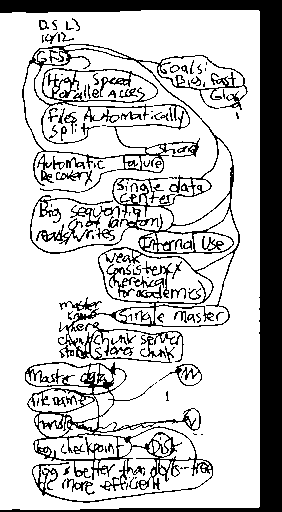 D.S. L3
10/12
GFS
Goals:
Big, fast
Glob
High Speed
Parallel Acces
Files Automatically
split
Shard
Automatic failure
Recovery
Single data
Center
Big sequential
(not random)
reads/writes
Internal Use
Weak
consistency
(heretical
for academics)
master
knows
where
chunk
stored
Single master
Chunk server
Stores Chunk
Master data
file name
handle
NV
V
log, checkpoint
Disk
log is better than db/b-tree
more efficient